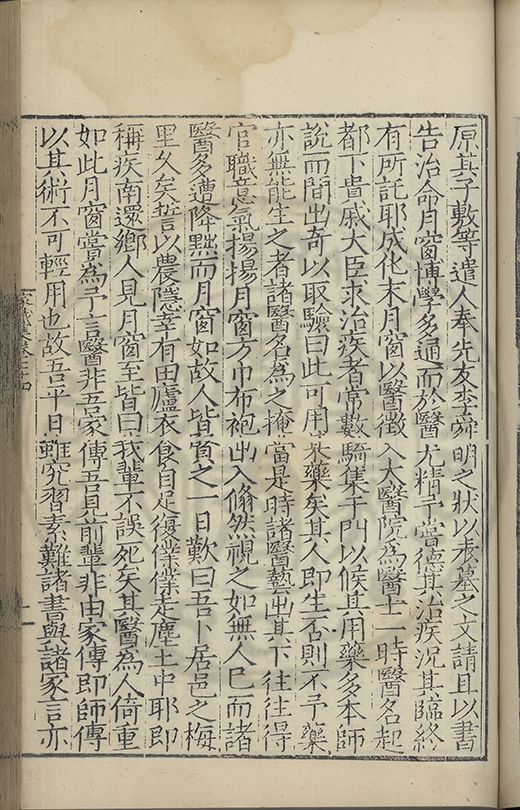 原其子敷等遣人奉先友李舜明之狀以表墓之文請且以書
告治命月窗博學多通而於醫尤精予嘗德其治疾況其臨終
有所託耶成化末月窗以醫徵入太醫院為醫士一時醫名起
都下貴戚大臣求治疾者常數騎集于門以候其用藥多本師
說而間出奇以取驗曰此可用某藥矣其人即生否則不予藥
亦無能生之者諸醫名為之掩當是時諸醫藝出其下往往得
官職意氣揚揚月窗方巾布袍出入翛然視之如無人已而諸
醫多遭降黜而月窗如故人皆賢之一日歎曰吾卜居邑之梅
里久矣誓以農隱幸有田廬衣食自足復僕僕走塵土中耶即
稱疾南還鄉人見月窗至皆曰我輩不誤死矣其醫為人倚重
如此月窗嘗為予言醫非吾家傳吾見前輩非由家傳即師傳
以其術不可輕用也故吾平日雖究習素難諸書與諸家言亦